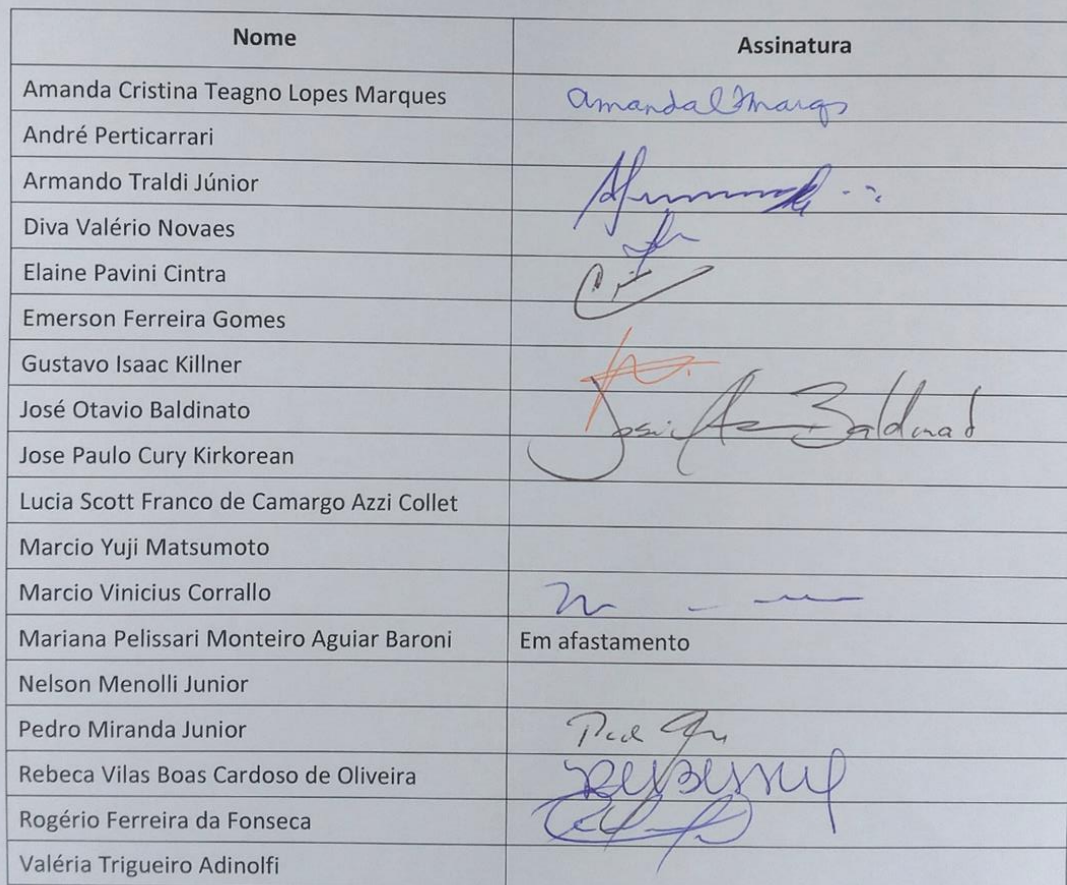 Nome Assinatura
Amanda Cristina Teagno Lopes Marques
André Perticarrari
Armando Traldi Júnior
Diva Valério Novaes
Elaine Pavini Cintra
Emerson Ferreira Gomes
Gustavo Isaac Killner
José Otavio Baldinato
Jose Paulo Cury Kirkorean
Lucia Scott Franco de Camargo Azzi Collet
Marcio Yuji Matsumoto
Marcio Vinicius Corrallo
Mariana Pelissari Monteiro Aguiar Baroni Em afastamento
Nelson Menolli Junior
Pedro Miranda Junior
Rebeca Vilas Boas Cardoso de Oliveira
Rogério Ferreira da Fonseca
Valéria Trigueiro Adinolfi